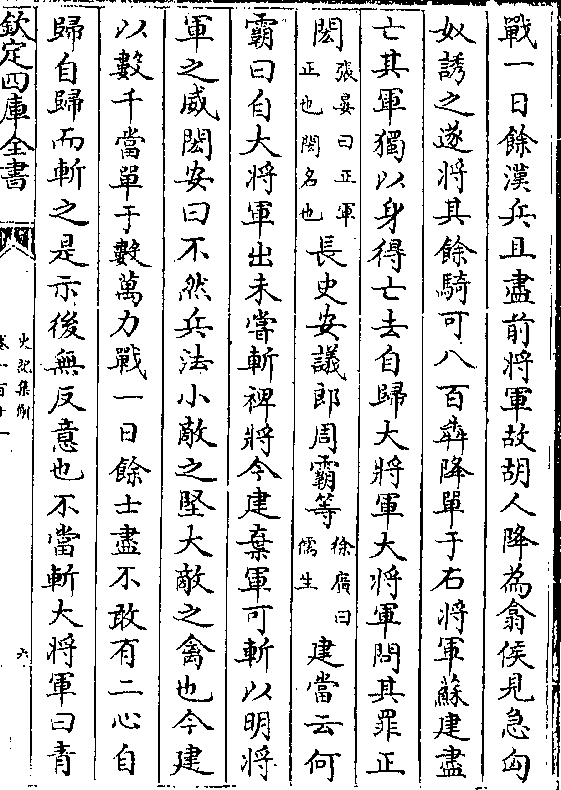 戰一日餘漢兵且盡前將軍故胡人降為翕侯見急匈
奴誘之遂將其餘騎可八百犇降單于右將軍蘇建盡
亡其軍獨以身得亡去自歸大將軍大將軍問其罪正
閎張晏曰正軍正也閎名也長史安議郎周霸等徐廣曰儒生建當云何
霸曰自大將軍出未嘗斬裨將今建棄軍可斬以明將
軍之威閎安曰不然兵法小敵之堅大敵之禽也今建
以數千當單于數萬力戰一日餘士盡不敢有二心自
歸自歸而斬之是示後無反意也不當斬大將軍曰青
欽定四庫全書
史記集解
卷一百十一
六